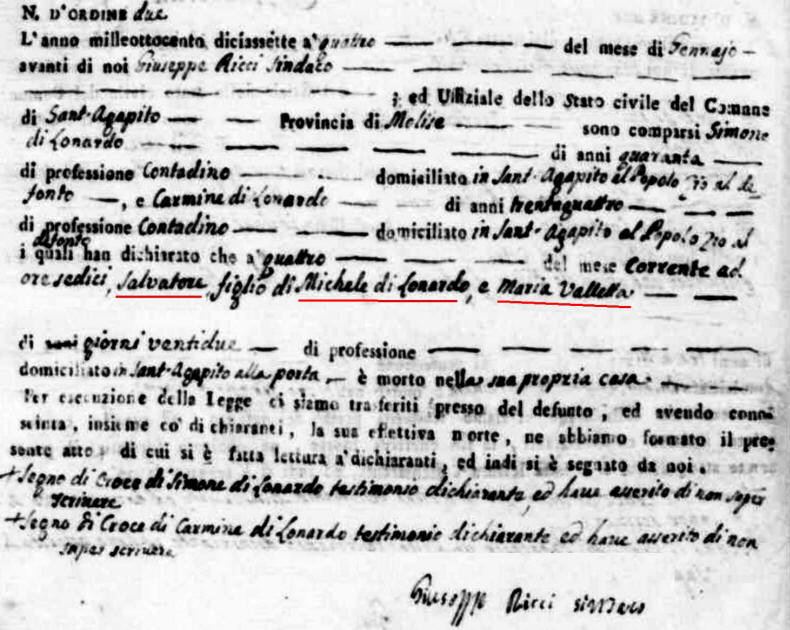 N. D'ORDINE due
L'anno milleottocento diciassette a' quattro — — — del mese di Gennajo —
avanti di noi Giuseppe Ricci Sindaco — — — — —
; ed Uffiziale dello Stato civile del Comune
di Sant'Agapito — — Provincia di Molise — — — sono comparsi Simone
di Lonardo — — — — — — di anni quaranta —
di professione Contadino — — domiciliato in Sant'Agapito al Popolo Zio al de
fonto —, e Carmine di Lonardo — — di anni trentaquattro — — —
di professione Contadino — — — domiciliato in Sant'Agapito al Popolo Zio al
defonto
i quali han dichiarato che a' quattro — — — — del mese Corrente ad
ore sedici, Salvatore, figlio di Michele di Lonardo, e Maria Vallella — —
di anni giorni ventidue — di professione — — — — — —
domiciliato in Sant'Agapito alla porta — è morto nella sua propria casa — —
Per esecuzione della Legge ci siamo trasferiti presso del defunto, ed avendo cono-
sciuta, insieme co' dichiaranti, la sua effettiva morte, ne abbiamo formato il pre
sente atto, di cui si è fatta lettura a' dichiaranti, ed indi si è segnato da noi.
+ Segno di Croce di Simone di Lonardo testimonio dichiarante, ed have asserito di non saper
scrivere
+ Segno di Croce di Carmine di Lonardo testimonio dichiarante ed have asserito di non
saper scrivere
Giuseppe Ricci sindaco